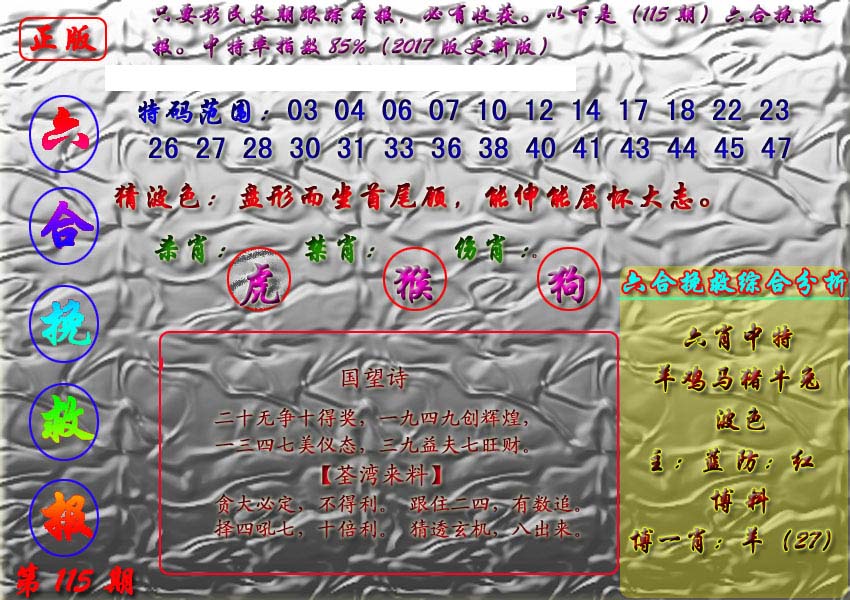 正版
只要彩民长期跟踪本报，必有收获。以下是（115期）六合挽救
报。中特率指数85%（2017版更新版）
六合挽救报
第115期
特码范围：03 04 06 07 10 12 14 17 18 22 23
26 27 28 30 31 33 36 38 40 41 43 44 45 47
猜波色：盘形而坐首尾顾，能伸能屈怀大志。
杀肖：虎 禁肖：猴 伤肖：。狗
国望诗
二十无争十得奖，一九四九创辉煌，
一三四七美仪态，三九益夫七旺财。
【荃湾来料】
贪大必定，不得利。 跟住二四，有数追。
择四吼七，十倍利。 猜透玄机，八出来。
六合挽救综合分析
六肖中特
羊鸡马猪牛兔
波色
主：蓝防：红
博料
博一肖：羊（27）